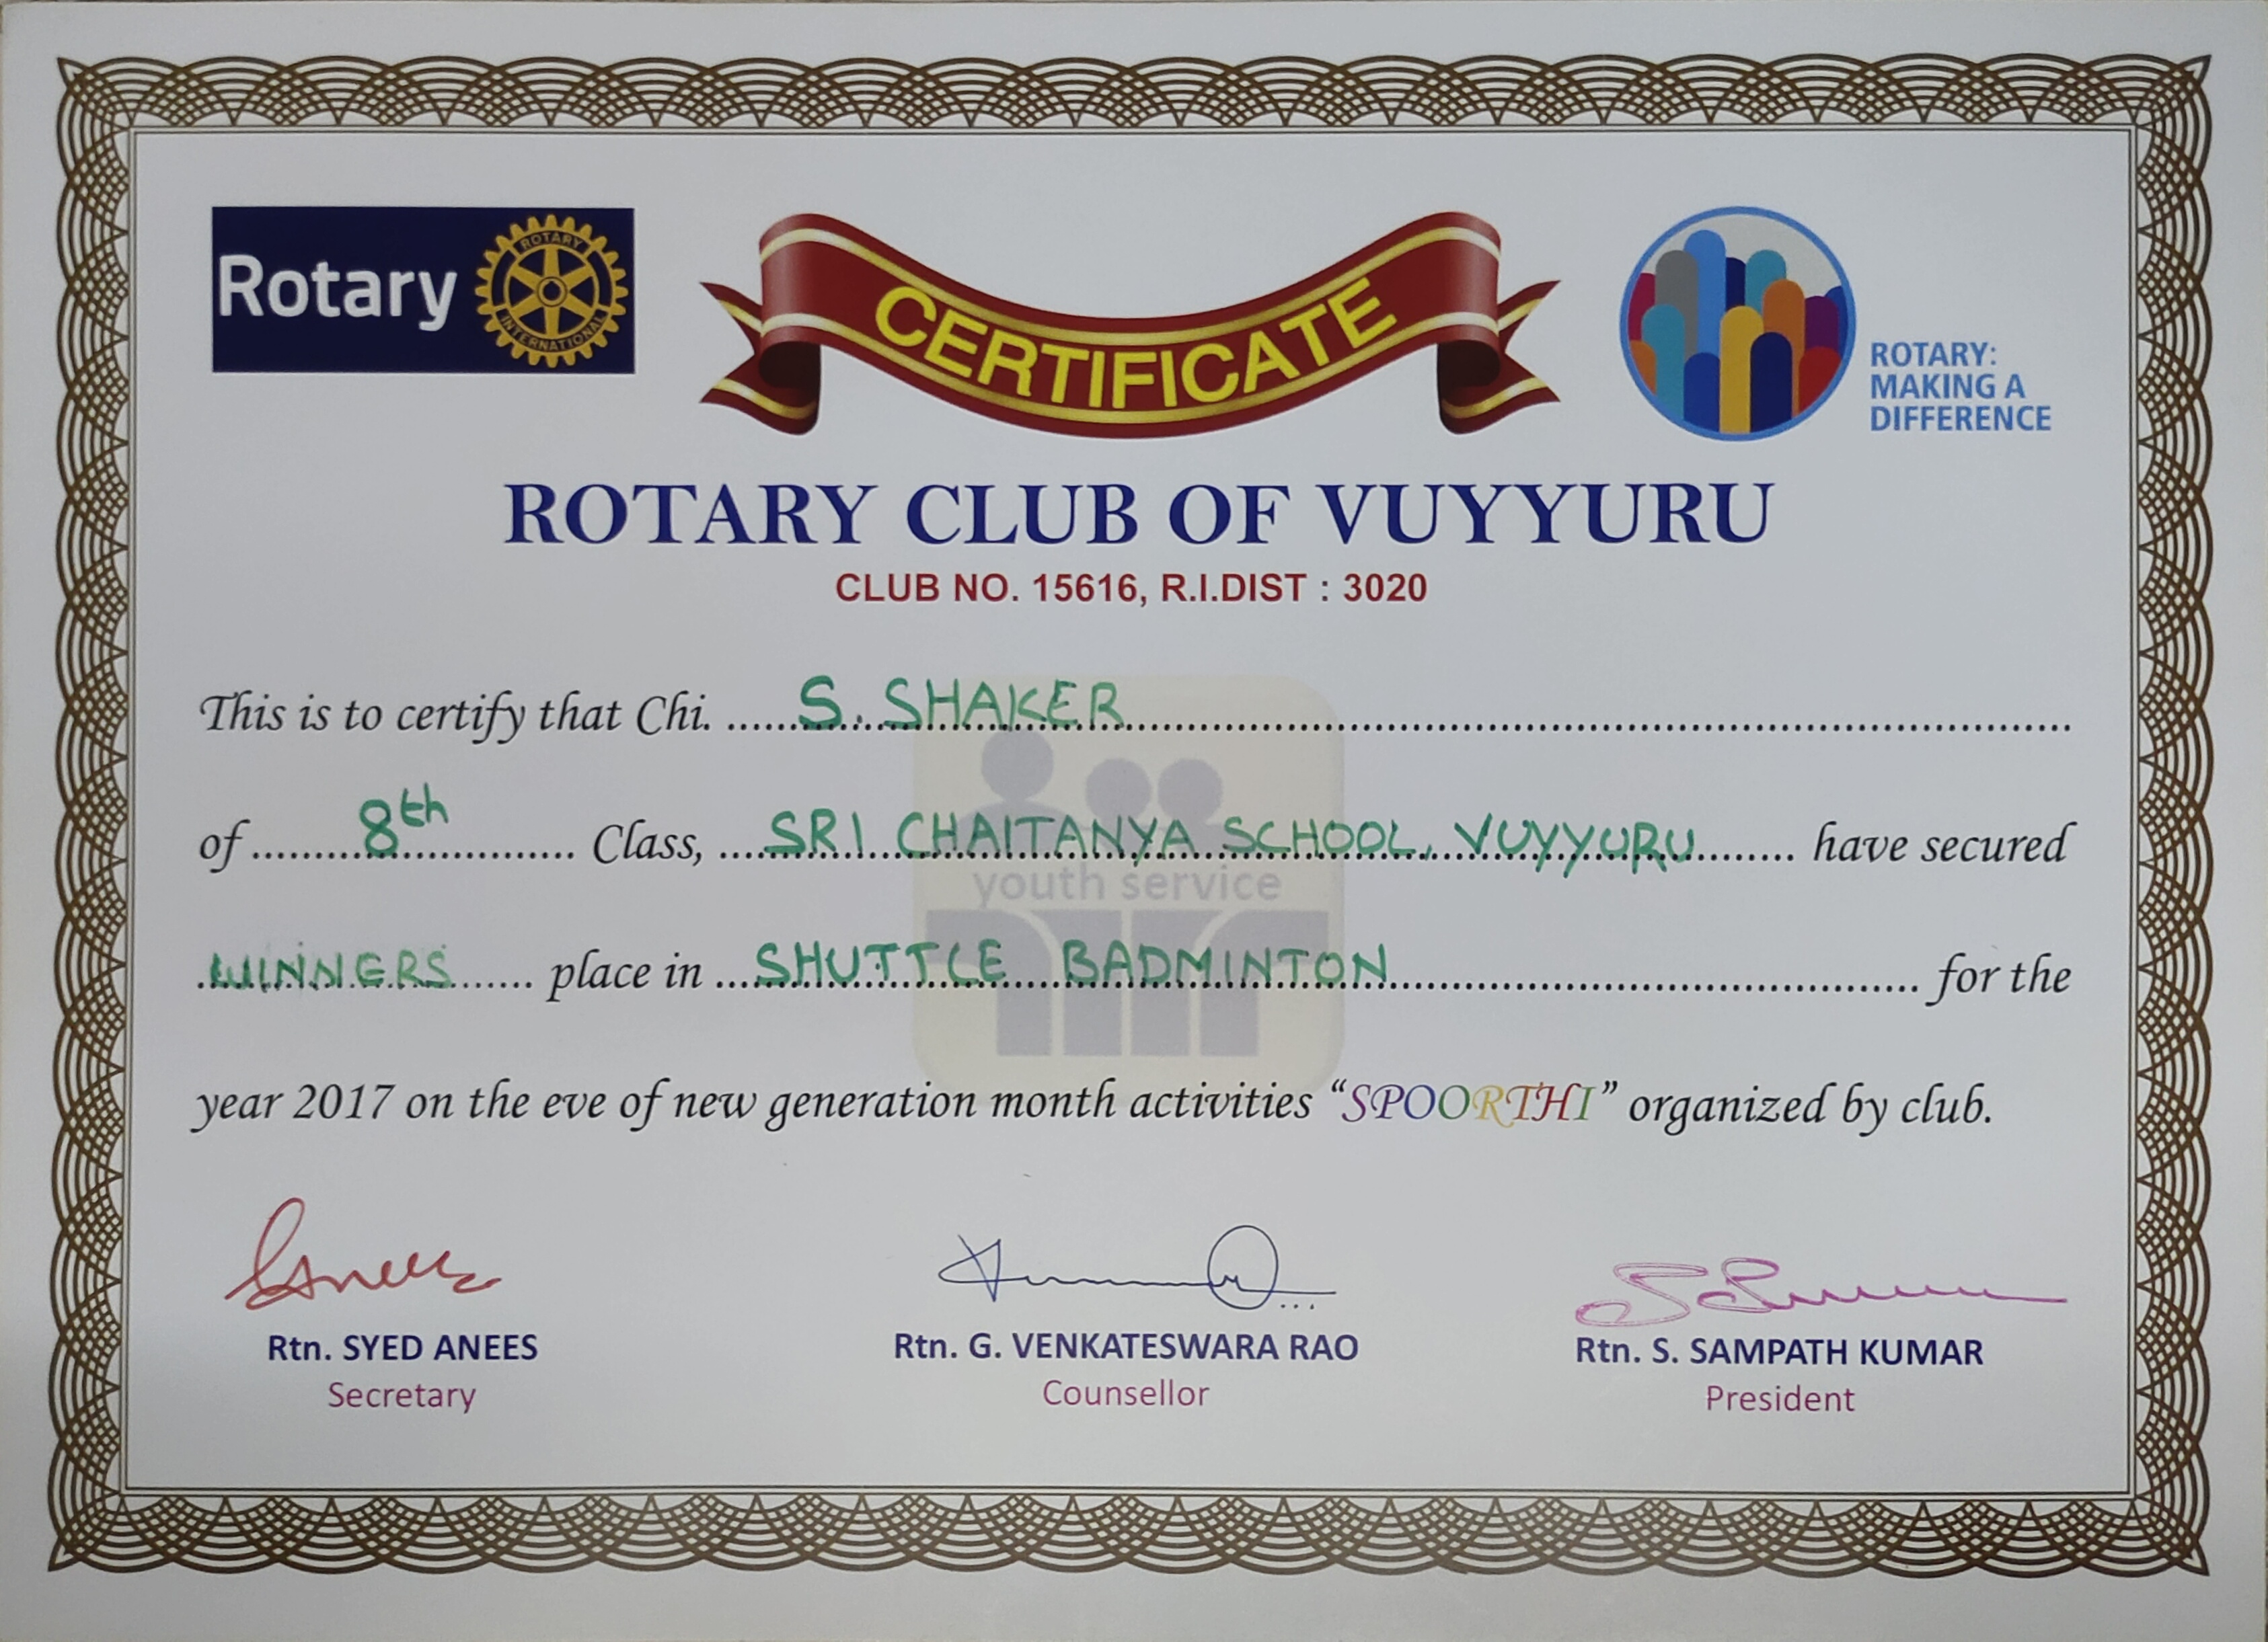 Rotary
ROTARY
INTERNATIONAL
CERTIFICATE
ROTARY:
MAKING A
DIFFERENCE
ROTARY CLUB OF VUYYURU
CLUB NO. 15616, R.I.DIST : 3020
This is to certify that Chi. S. SHAKER
of 8th Class, SRI CHAITANYA SCHOOL, VUYYURU have secured
youth service
WINNERS place in SHUTTLE BADMINTON for the
year 2017 on the eve of new generation month activities “SPOORTHI” organized by club.
Rtn. SYED ANEES
Secretary
Rtn. G. VENKATESWARA RAO
Counsellor
Rtn. S. SAMPATH KUMAR
President